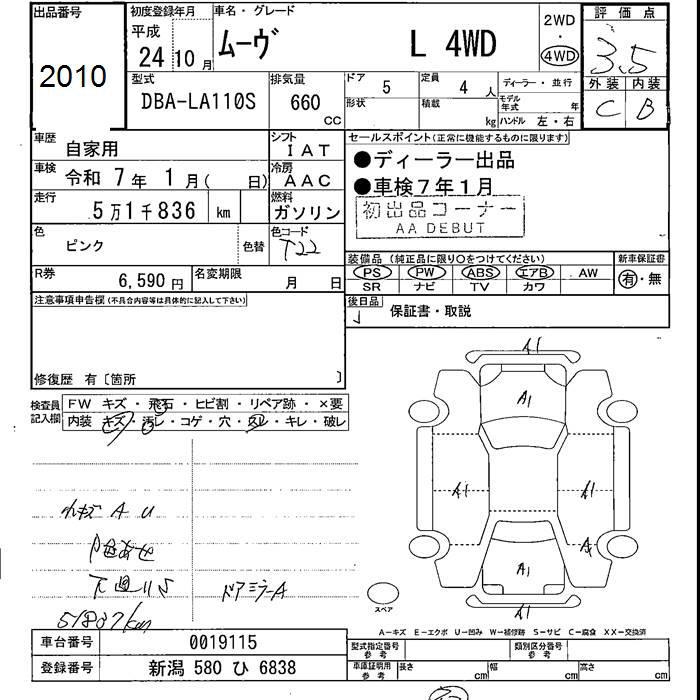 出品番号
2010
初度登録年月
平成
24 10月
車名・グレード
ムーヴ L 4WD
2WD
・
4WD
評価点
3.5
外装 内装
C B
型式
DBA-LA110S
排気量
660 cc
ドア 5
形状
定員 4 人
積載 kg
ディーラー・並行
モデル年式 年
ハンドル 左・右
車歴 自家用
シフト IAT
車検 令和 7年 1月( 日)
冷房 AAC
走行 5万1千836 km
燃料 ガソリン
色 ピンク
色替
色コード T22
R券 6,590円
名変期限 月 日
セールスポイント(正常に機能するものに限ります)
●ディーラー出品
●車検7年1月
初出品コーナー
AA DEBUT
装備品(純正品に限り○をつけてください)
新車保証書
PS PW ABS エアB AW
有・無
SR ナビ TV カワ
後日品
保証書・取説
注意事項申告欄(不具合内容等は具体的に記入して下さい)
修復歴 有〔箇所 〕
検査員記入欄
FW キズ・飛石・ヒビ割・リペア跡・×要
内装 キズ・汚レ・コゲ・穴・スレ・キレ・破レ
A U
ドアミラーA
51837km
A1
A1
A1 A1
A
A1
A1
スペア
A―キズ E―エクボ U―凹み W―補修跡 S―サビ C―腐食 XX―交換済
車台番号 0019115
登録番号 新潟 580 ひ 6838
型式指定番号 参考
類別区分番号 参考
車庫証明用 参考
長さ cm 幅 cm 高さ cm